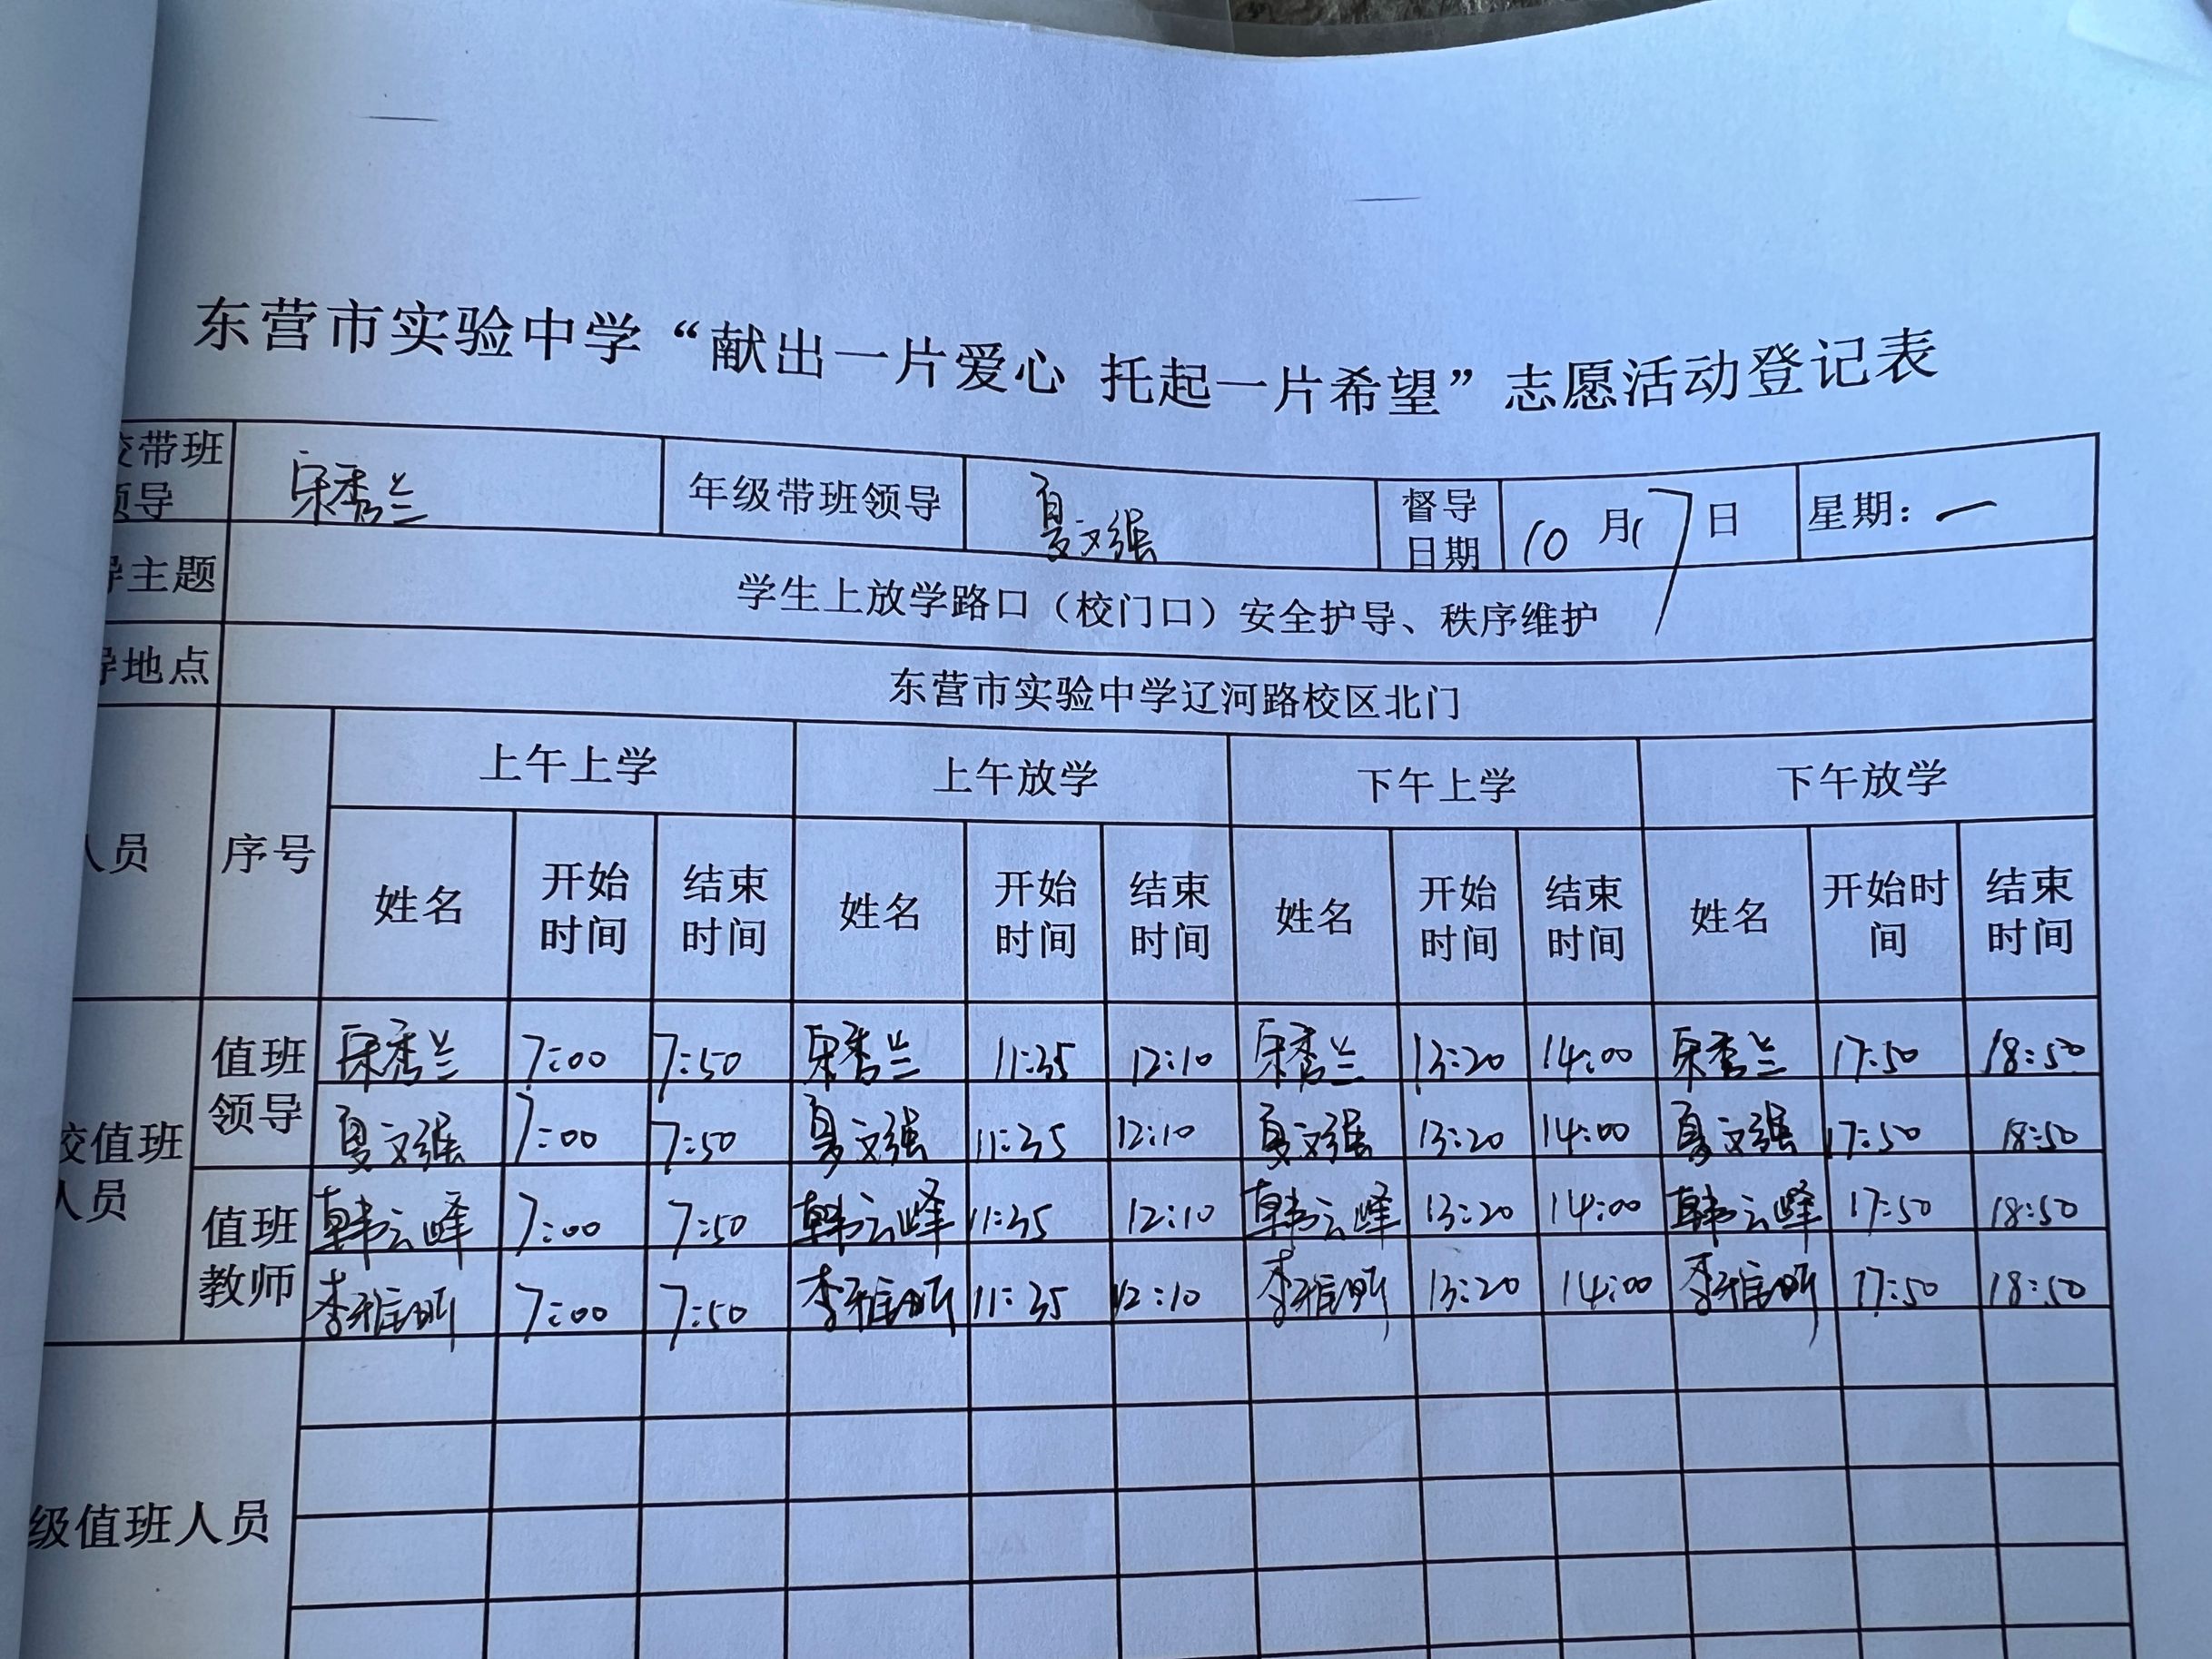 东营市实验中学“献出一片爱心 托起一片希望”志愿活动登记表
校带班领导 宋秀兰 年级带班领导 夏文强 督导日期 10月17日 星期：一
导主题 学生上放学路口（校门口）安全护导、秩序维护
导地点 东营市实验中学辽河路校区北门
人员 序号 上午上学 上午放学 下午上学 下午放学
姓名 开始时间 结束时间 姓名 开始时间 结束时间 姓名 开始时间 结束时间 姓名 开始时间 结束时间
校值班人员 值班领导 宋秀兰 7:00 7:50 宋秀兰 11:35 12:10 宋秀兰 13:20 14:00 宋秀兰 17:50 18:50
夏文强 7:00 7:50 夏文强 11:35 12:10 夏文强 13:20 14:00 夏文强 17:50 18:50
值班教师 韩云峰 7:00 7:50 韩云峰 11:35 12:10 韩云峰 13:20 14:00 韩云峰 17:50 18:50
李雅昕 7:00 7:50 李雅昕 11:35 12:10 李雅昕 13:20 14:00 李雅昕 17:50 18:50
级值班人员